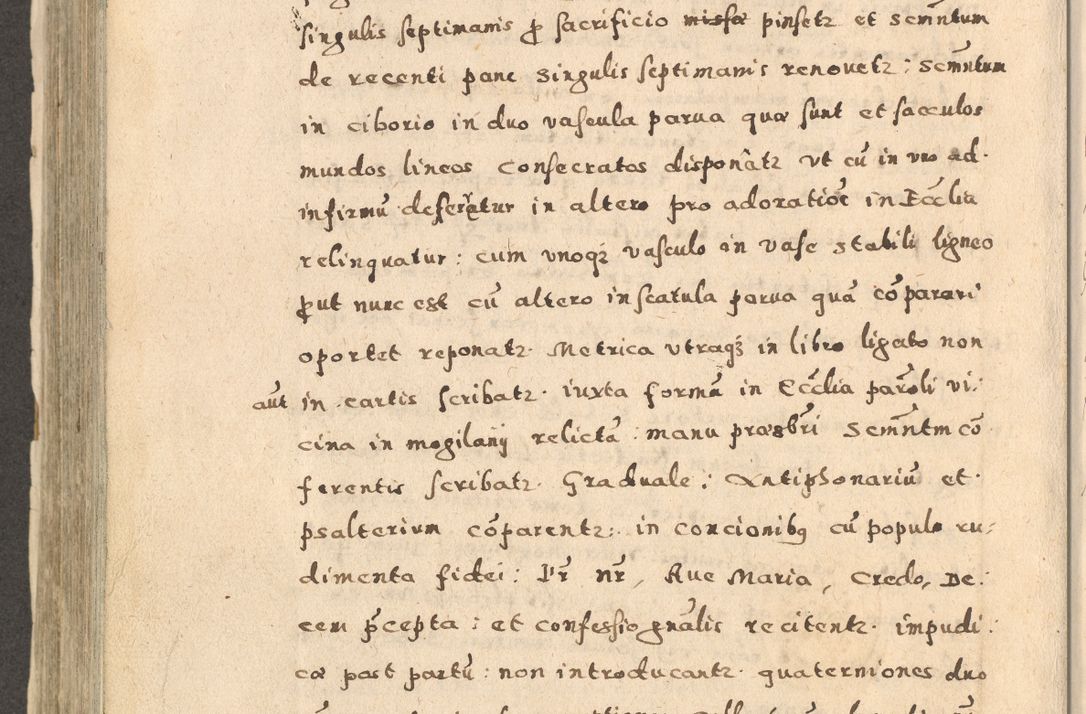 singulis septimanis ꝑ sacrificio missæ pinsetꝛ et Scm̃ntum
de recenti pane singulis septimanis renouetꝛ: Scm̃ntum
in ciborio in duo vascula parua quæ sunt et sacculos
mundos lineos consecratos disponātꝛ vt cū in vno ad
infirmū deferatur in altero pro adoratiōe in Eccĺia
relinquatur: cum vnoqꝫ vasculo in vase stabili ligneo
ꝓut nunc est cū altero in scatula parua quā cōparari
oportet reponatꝛ. Metrica vtraqꝫ in libro ligato non
aūt in cartis scribatꝛ. iuxta formā in Eccĺia parōli vi:
cina in mogilanÿ relictā: manu præsbr̄i Scm̃ntm cō
ferentis scribatꝛ. Graduale: Antiphonariū et
psalterium cōparentꝛ: in concionibꝫ cū populo ru:
dimenta fidei: Pr̄ nr̄, Aue Maria, Credo, De:
cem p̄cepta: et confessio gn̄alis recitentꝛ. impudi:
cæ post partū: non introducantꝛ. quaterniones duo